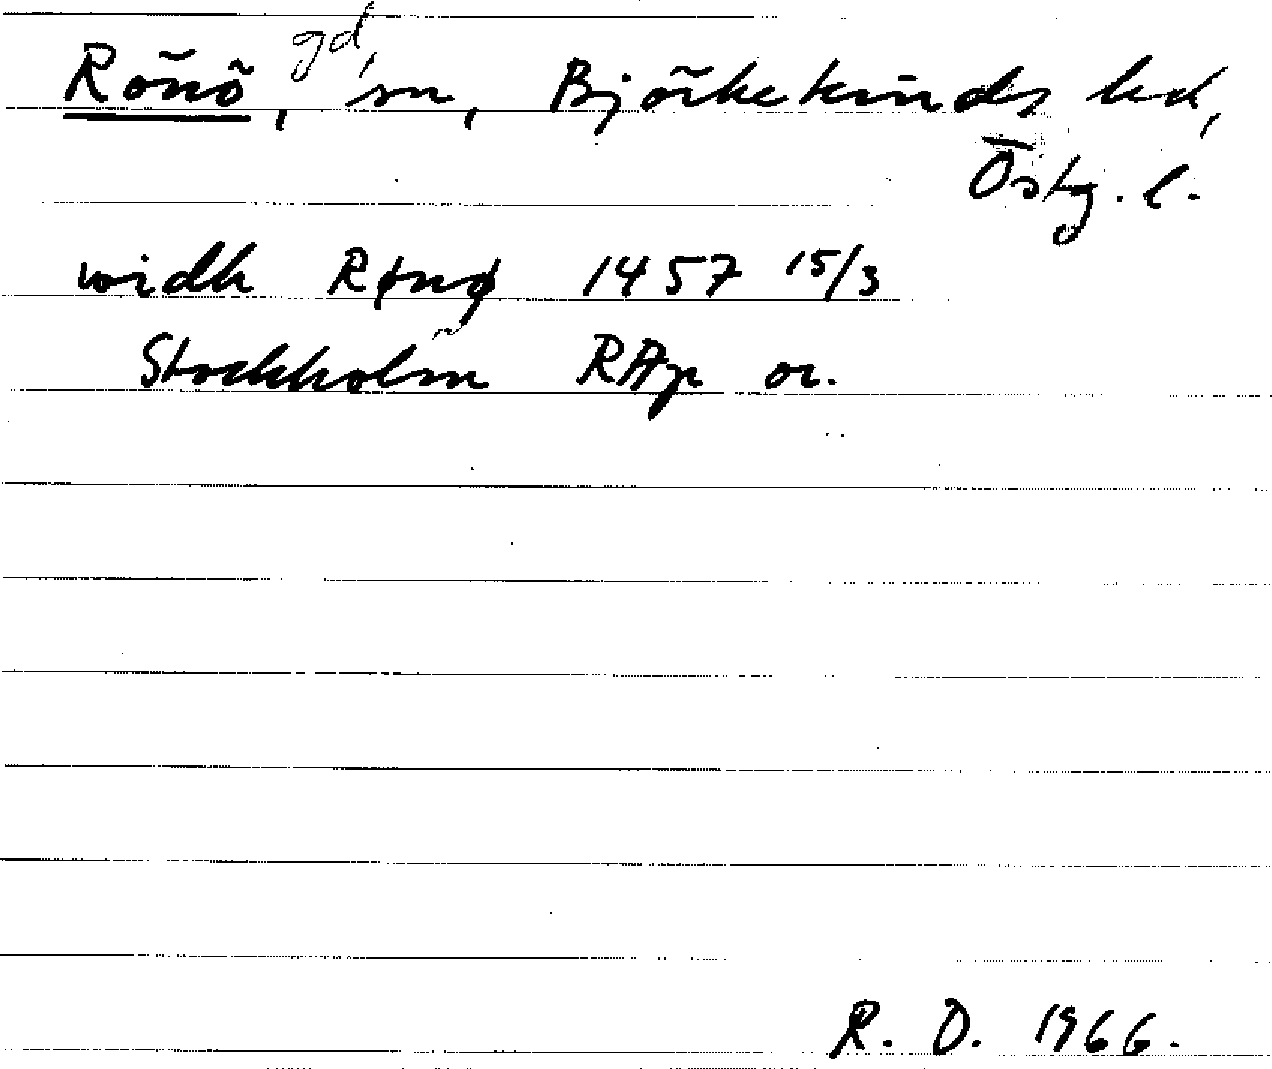 Rönö, gd, sn, Björkekinds hd,
Östg. l.
widh Rønø 1457 15/3
Stockholm RAp or.
R. D. 1966.